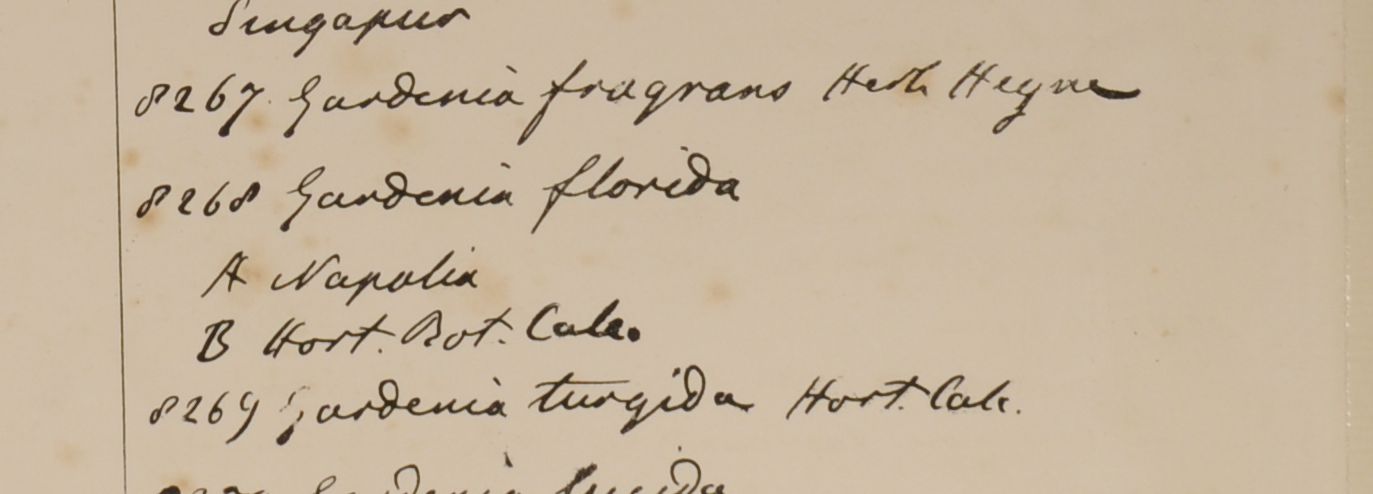 Singapur
8267 Gardenia fragrans Herb Heyne
8268 Gardenia florida
A Napalia
B Hort. Bot. Calc.
8269 Gardenia turgida Hort. Calc.
Gardenia lucida